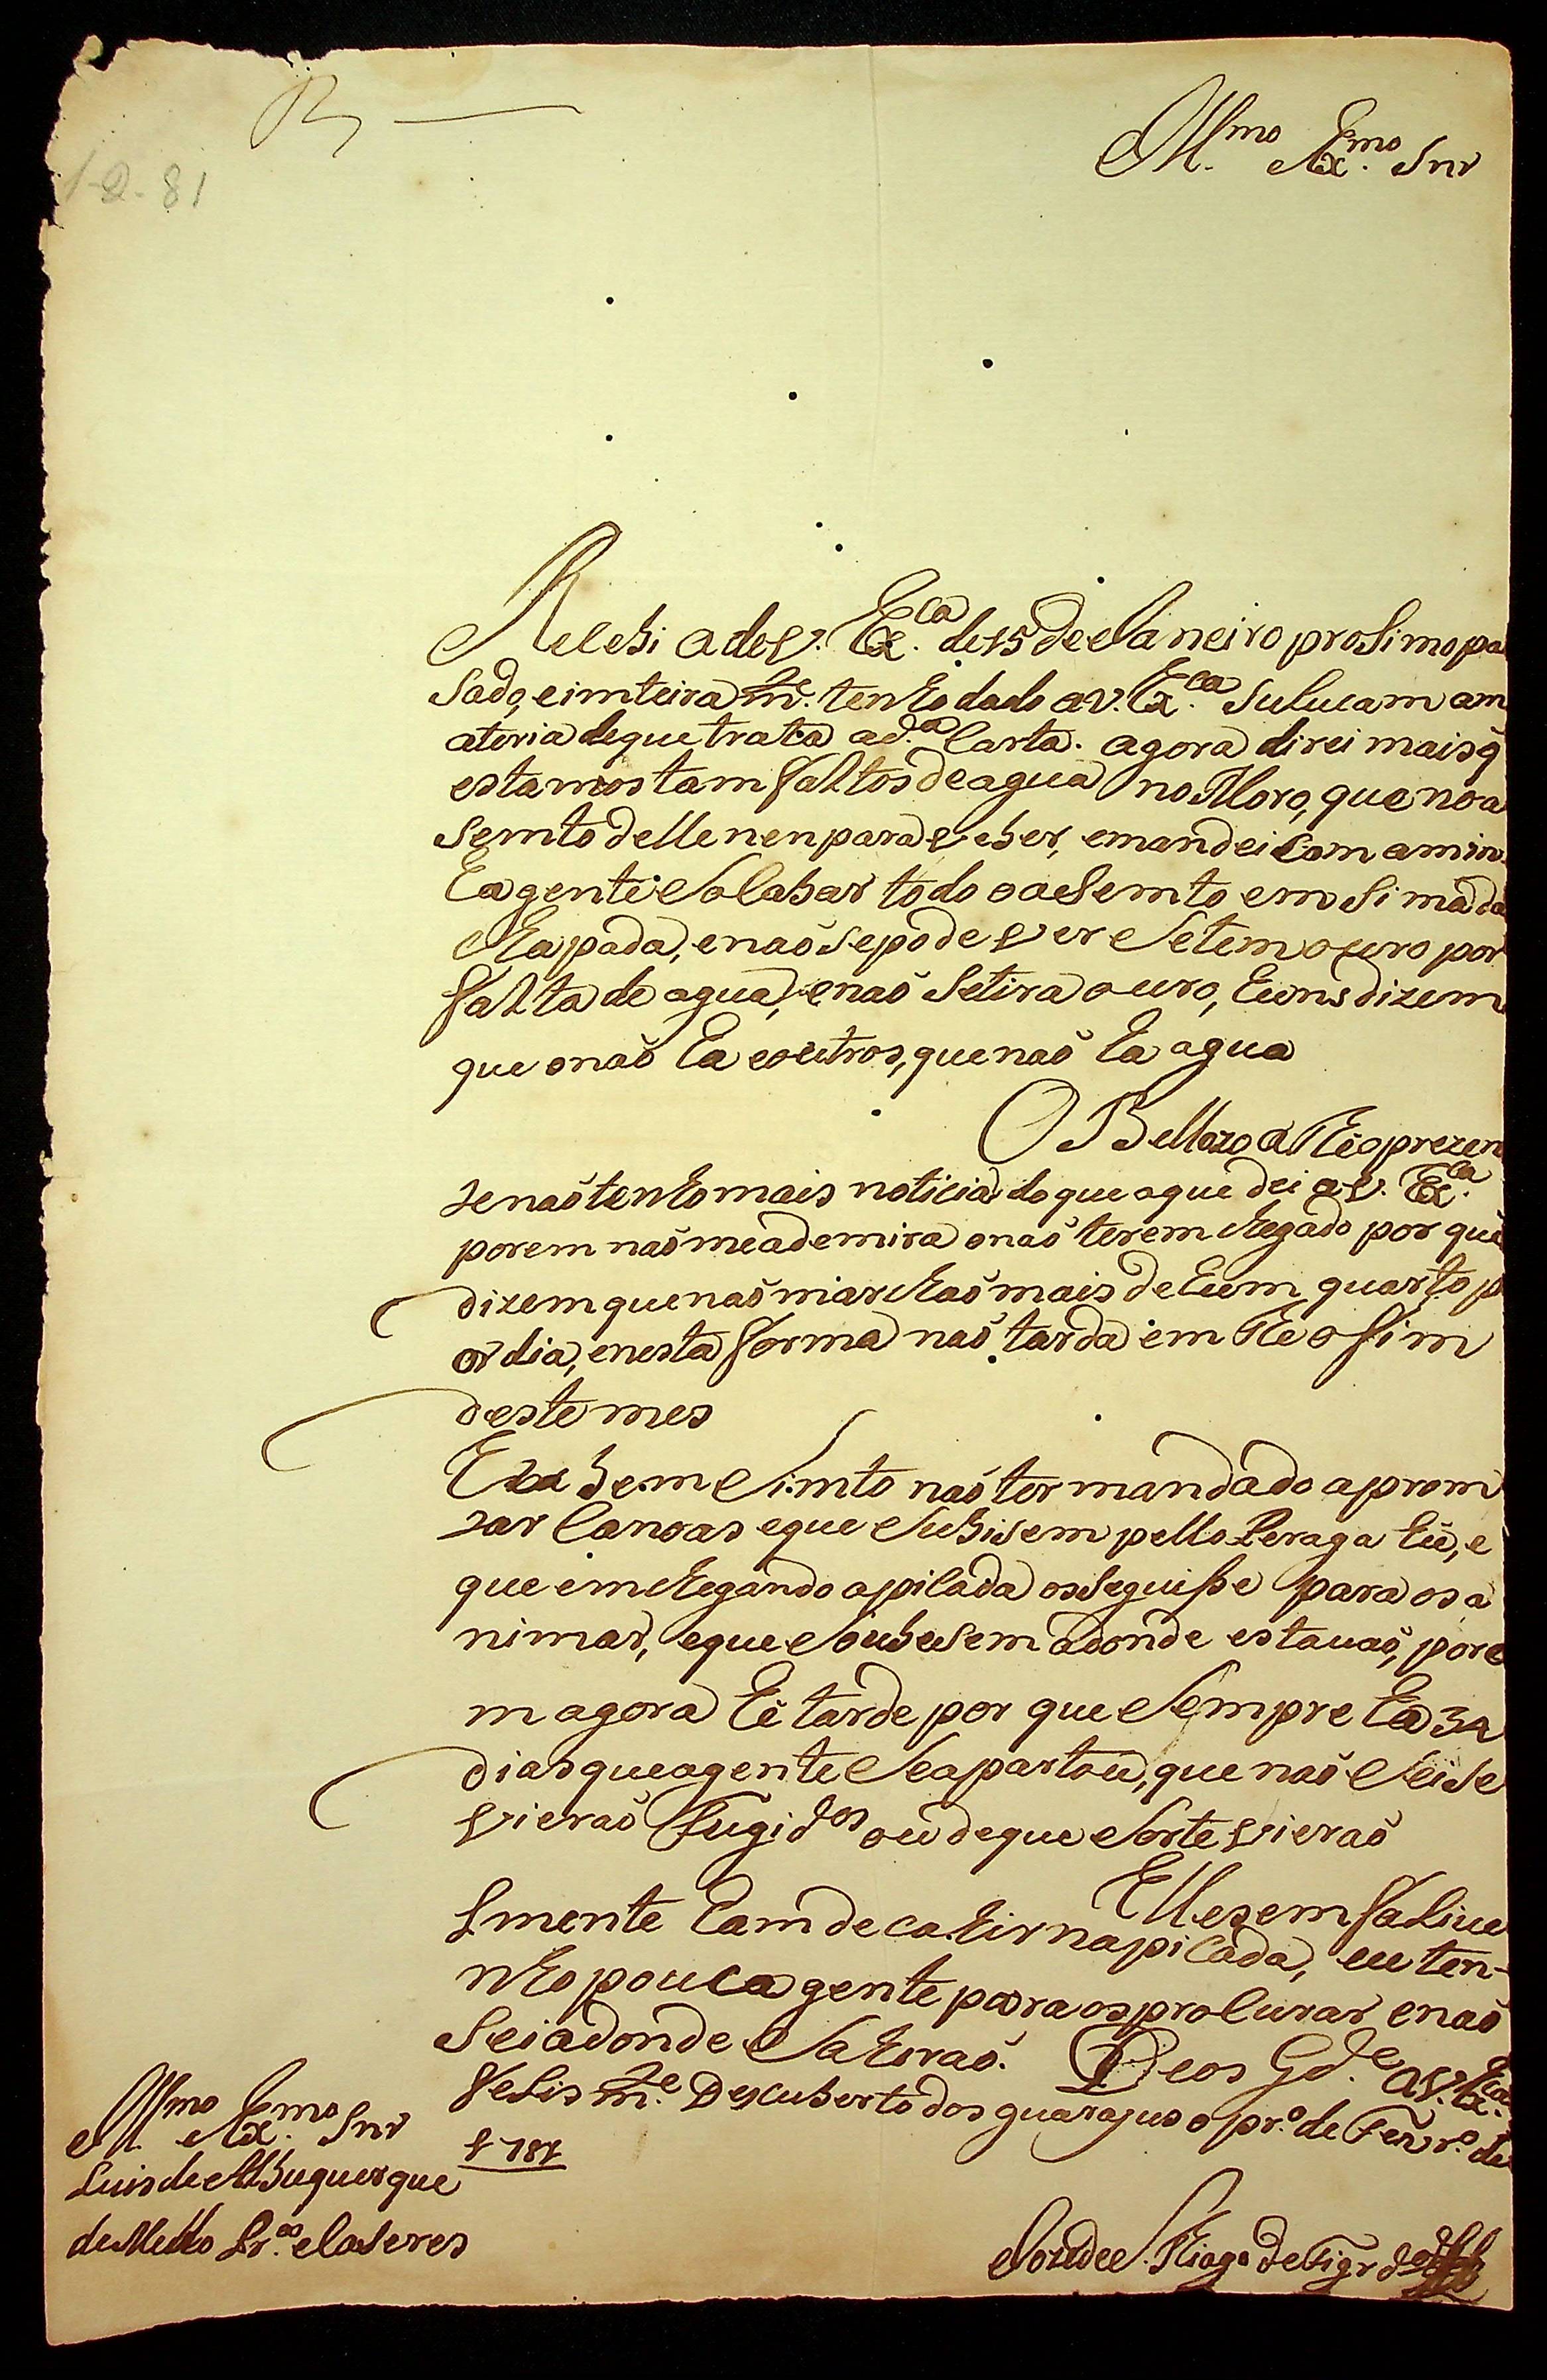 R
1-2-81
Ill.mo e Ex.mo Snr
Recebi a de V. Ex.ca de 15 de Janeiro prosimo pa
sado, e imteira m.te tenho dado a V. Ex.ca sulucam a m
ateria de que trata a d.a Carta. agora direi mais q̃
estamos tam faltos de agua no Moro, que no a
semto delle nen para veber, e mandei com a min
ha gente Socabar todo o asemto em sima da
chapada, e naõ se pode ver Se tem ouro por
falta de agua, e naõ Se tira ouro, huns dizem
que o naõ ha e outros, que naõ ha agua
O Bellozo athe o prezen
te naõ tenho mais noticia do que a que dei a V. Ex.ca
porem naõ me ademira o naõ terem chegado por que
dizem que naõ marchaõ mais de hum quarto p
or dia, e nesta forma naõ tarda em the o fim
deste mes
Eu bem Simto naõ ter mandado aprom
tar Canoas e que Subisem pello Peraga hú, e
que em chegando a picada os Seguiſse para os a
nimar, e que Soubesem adonde estauaõ, pore
m agora hé tarde por que Sempre ha 32
dias que a gente Se apartou, que naõ Sei Se
vieraõ Fugid.os ou de que Sorte vieraõ
Elles em faLiue
Lmente ham de cahir na picada, eu ten-
nho pouca gente para os procurar e naõ
Sei adonde Sahiraõ. Deos G.de a V. Ex.ca
felis m.te Descuberto dos guarajus o pr.o de Feur.o de
1781
Ill.mo e Ex.mo Snr
Luis de Albuquerque
de Mello Pr.a e Caseres